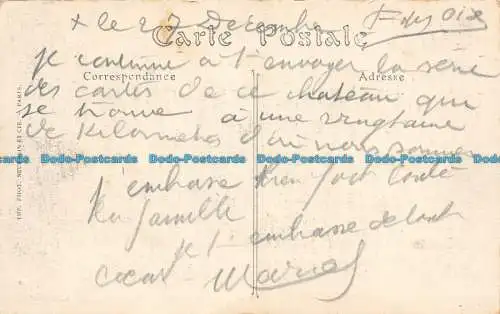 + le 27 Decembre
Carte Postale
je continue a t'envoyer la serie
Correspondance Adresse
des cartes de ce chateau qui
se trouve à une vingtaine
de Kilometres d'où nous sommes
Dodo-Postcards Dodo-Postcards Dodo-Postcards Dodo-Postcards
j'embrasse bien fort toute
la famille
je t'embrasse de tout
cœur Marcel
IMP. PHOT. ET CIE. A PARIS